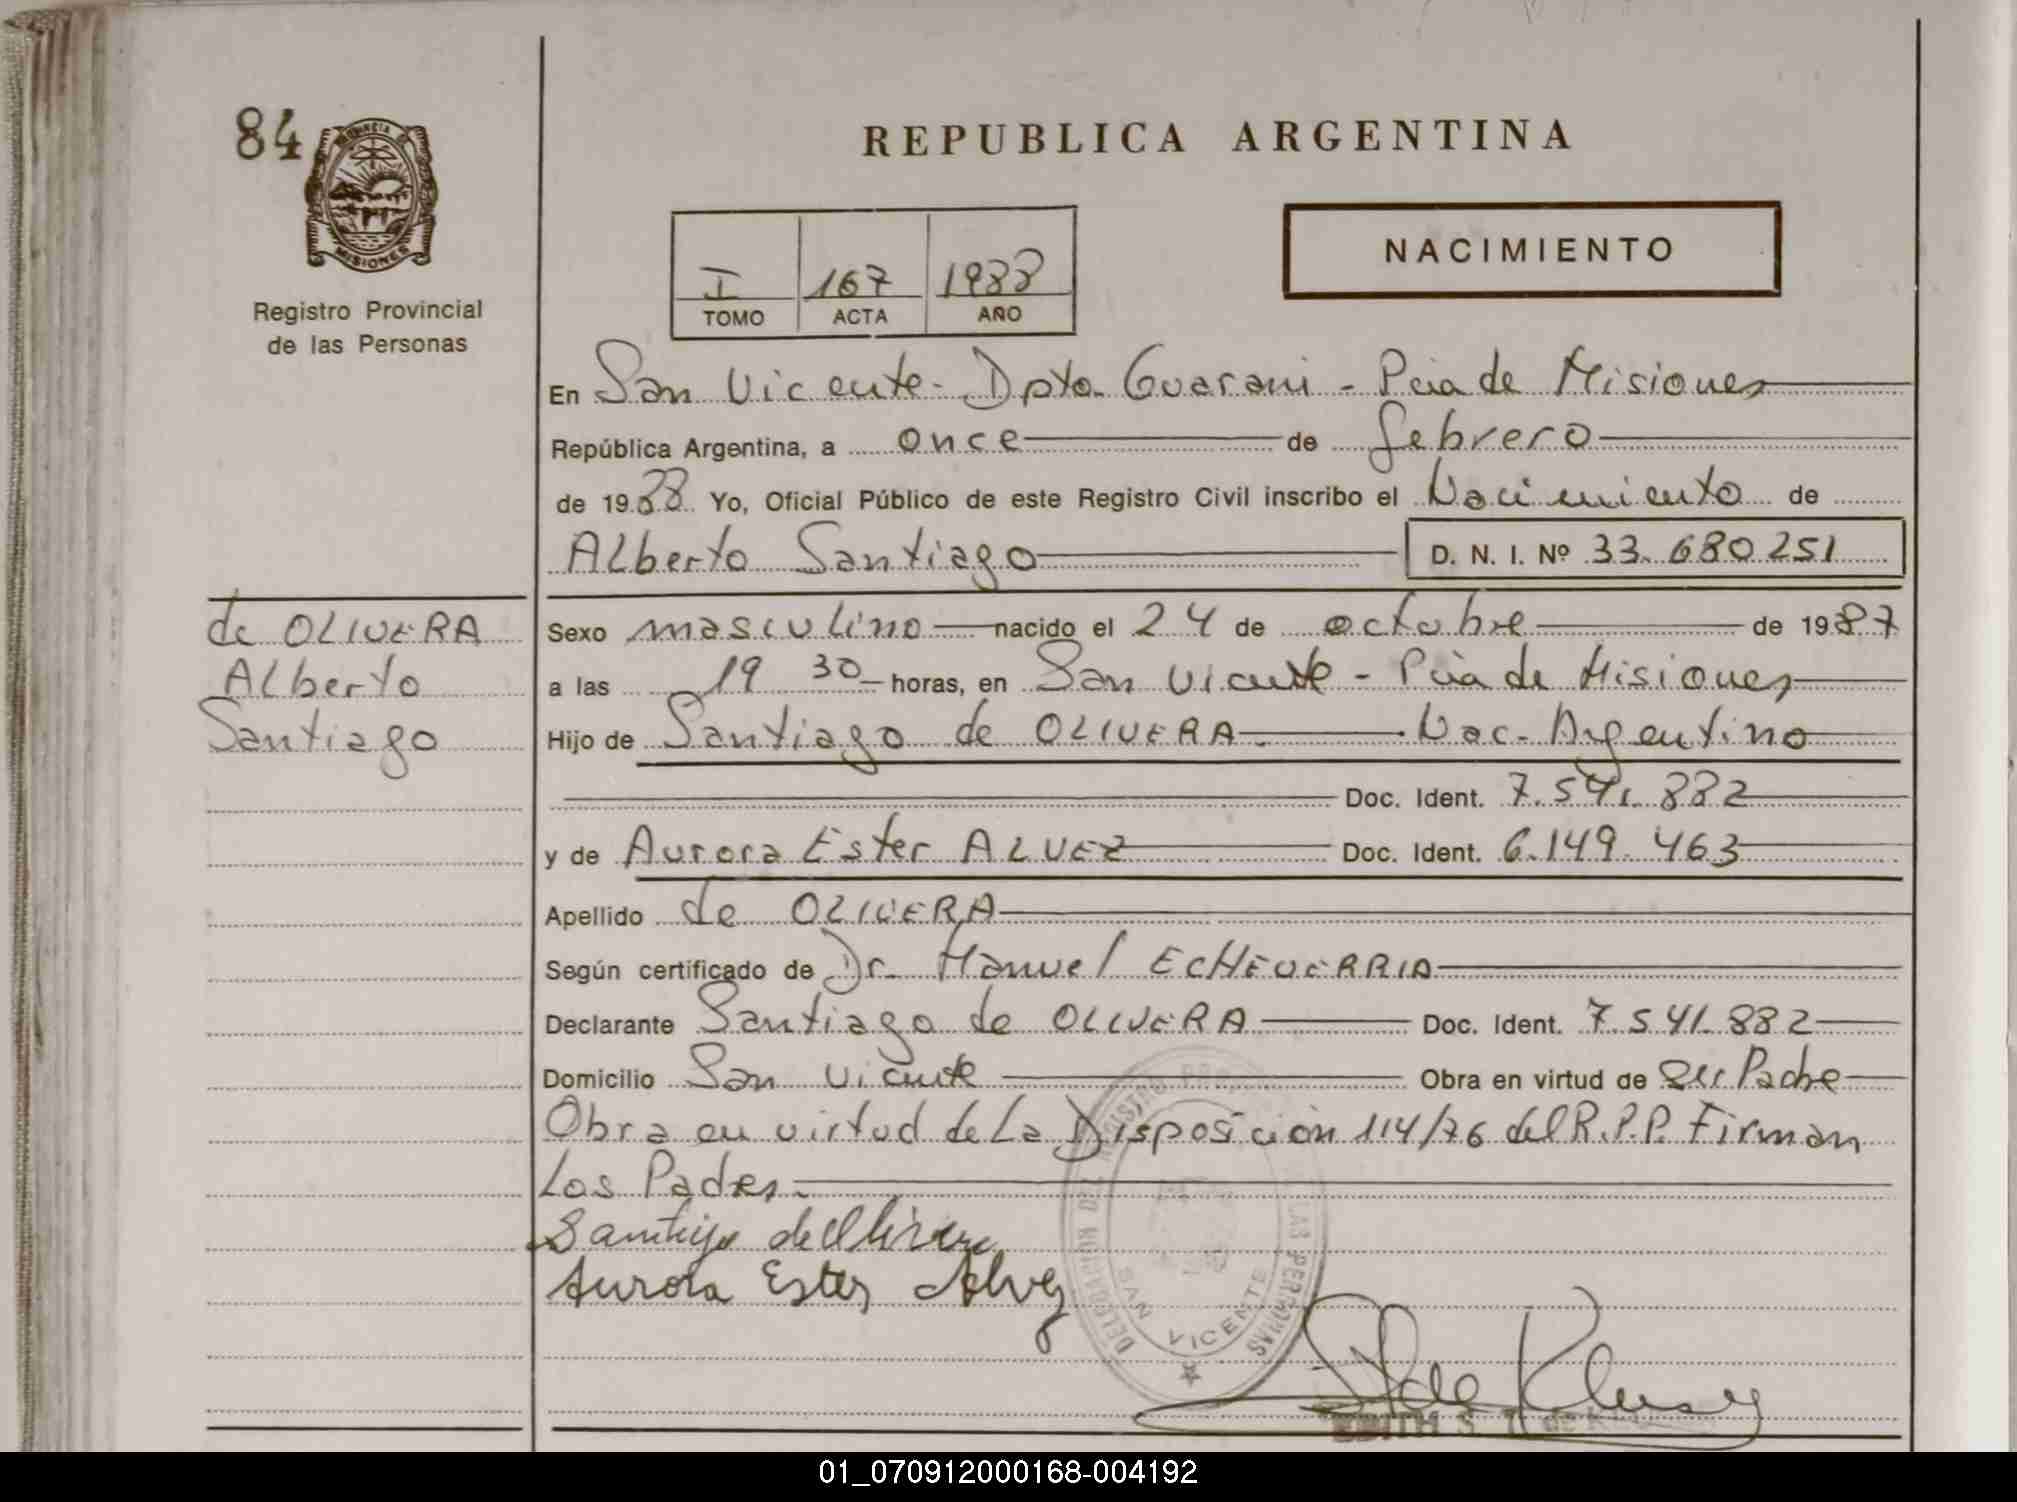 84
PROVINCIA DE
MISIONES
Registro Provincial
de las Personas
REPUBLICA ARGENTINA
NACIMIENTO
I 167 1988
TOMO ACTA AÑO
En San Vicente - Dpto. Guarani - Pcia de Misiones
República Argentina, a once de febrero
de 1988 Yo, Oficial Público de este Registro Civil inscribo el Nacimiento de
Alberto Santiago D. N. I. Nº 33.680251
de OLIVERA
Alberto
Santiago
Sexo masculino nacido el 24 de octubre de 1987
a las 19 30 horas, en San Vicente - Pcia de Misiones
Hijo de Santiago de OLIVERA Nac. Argentino
Doc. Ident. 7.541.882
y de Aurora Ester ALVEZ Doc. Ident. 6.149.463
Apellido de OLIVERA
Según certificado de Dr. Manuel ECHEVERRIA
Declarante Santiago de OLIVERA Doc. Ident. 7.541.882
Domicilio San Vicente Obra en virtud de ser Padre
Obra en virtud de la Disposición 114/76 del R.P.P. Firman
Los Padres.
Santiago de Olivera
Aurora Ester Alvez
DELEGACION DEL REGISTRO DE LAS PERSONAS
SAN VICENTE
EDITH S. T. de
01_070912000168-004192